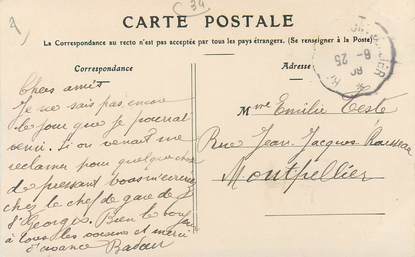 (34
CARTE POSTALE
La Correspondance au recto n'est pas acceptée par tous les pays étrangers. (Se renseigner à la Poste)
Correspondance
Adresse
Chers amis
Je ne sais pas encore
le jour que je pourrai
venir. Si on venait me
reclamer pour quelque chose
de pressant vous m'écrirez
chez le chef de gare de
St Georges. Bien le bonjour
à tous les voisins et merci
d'avance
Mme Emilie Teste
Rue Jean Jacques Rousseau
Montpellier
8-25